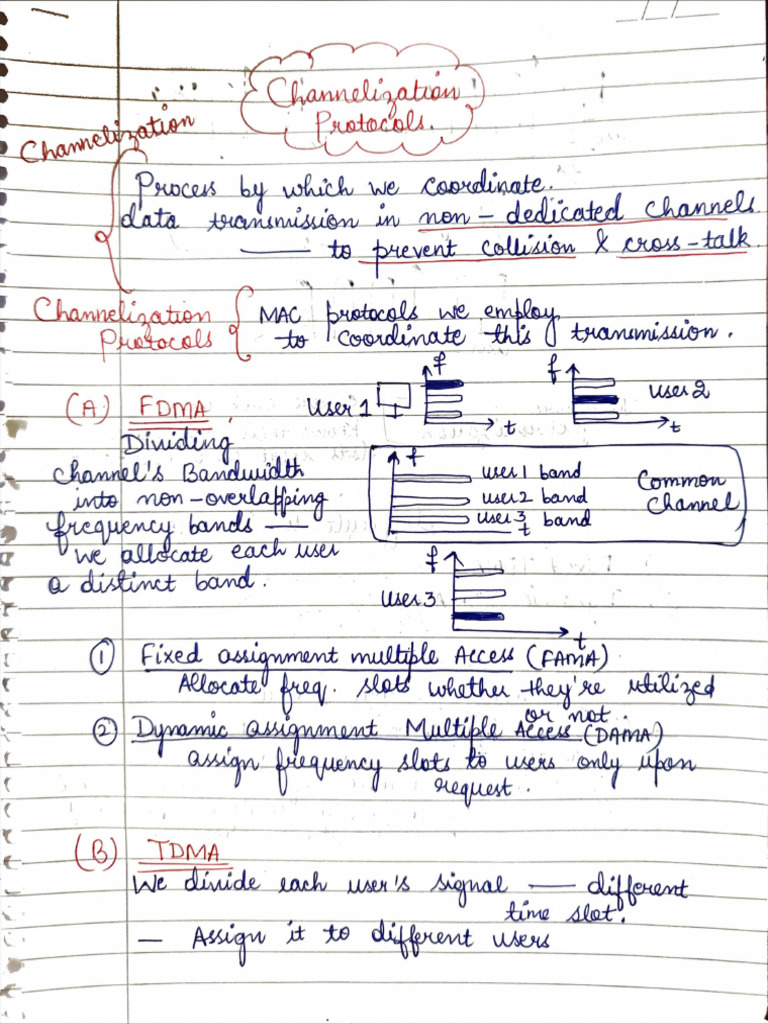 Channelization
Protocols.
Channelization
Process by which we coordinate.
data transmission in non-dedicated channels.
—— to prevent collision & cross-talk.
Channelization
Protocols
MAC protocols we employ
to coordinate this transmission.
(A) FDMA.
User 1
f
t
f
t
User 2
Dividing
channel's Bandwidth
into non-overlapping
frequency bands ——
we allocate each user
a distinct band.
f
user 1 band
user 2 band
user 3 band
t
Common
Channel
f
user 3
t
① Fixed assignment multiple Access (FAMA)
Allocate freq. slots whether they're utilized
or not.
② Dynamic assignment Multiple Access (DAMA)
assign frequency slots to users only upon
request.
(B) TDMA
We divide each user's signal —— different
time slot.
— Assign it to different users